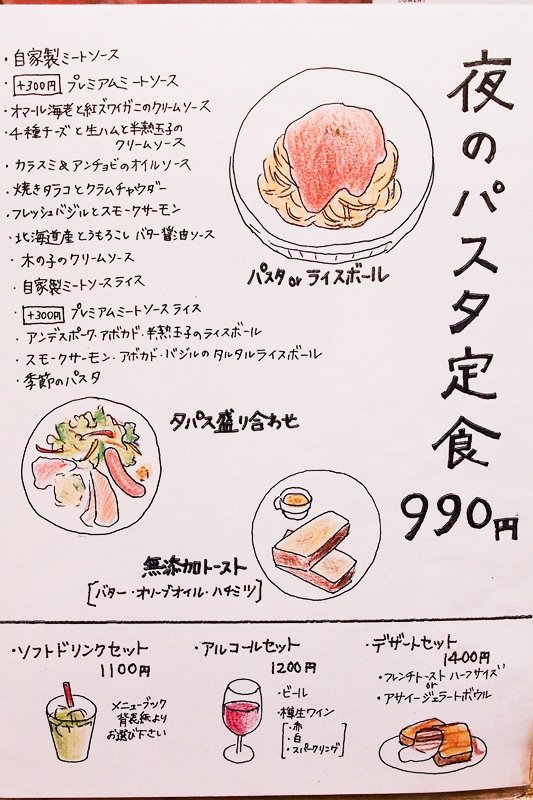 夜のパスタ定食
990円
・自家製ミートソース
・+300円 プレミアムミートソース
・オマール海老と紅ズワイガニのクリームソース
・4種チーズと生ハムと半熟玉子の
クリームソース
・カラスミ&アンチョビのオイルソース
・焼きタラコとクラムチャウダー
・フレッシュバジルとスモークサーモン
・北海道産とうもろこし バター醤油ソース
・木の子のクリームソース
・自家製ミートソースライス
・+300円 プレミアムミートソースライス
・アンデスポーク・アボカド・半熟玉子のライスボール
・スモークサーモン・アボカド・バジルのタルタルライスボール
・季節のパスタ
パスタ or ライスボール
タパス盛り合わせ
無添加トースト
[バター・オリーブオイル・ハチミツ]
・ソフトドリンクセット
1100円
メニューブック
背表紙より
お選び下さい
・アルコールセット
1200円
・ビール
・樽生ワイン
・赤
・白
・スパークリング
・デザートセット
1400円
・フレンチトースト ハーフサイズ
or
・アサイージェラートボウル